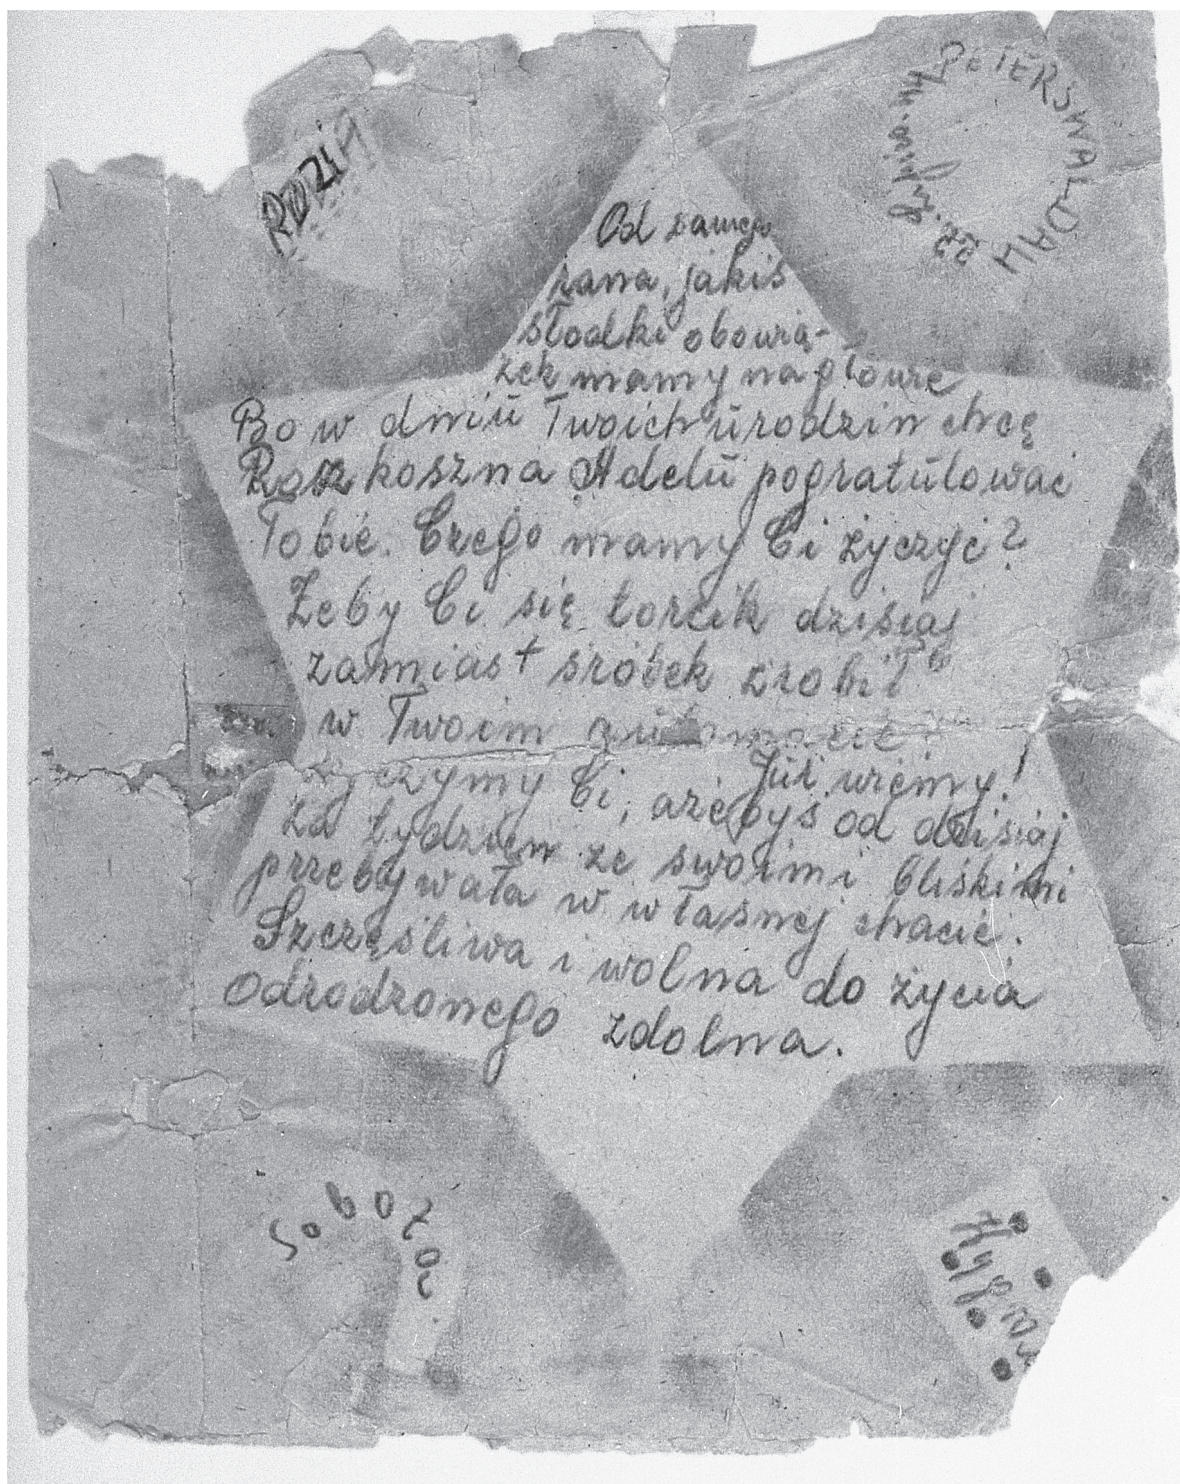 RÓZIA
PETERSWALDAU
22. lipiec. 44
Od samego
rana, jakiś
słodki obowią-
zek mamy na głowie
Bo w dniu Twoich urodzin chcę
Rozkoszna Adelu pogratulować
Tobie. Czego mamy Ci życzyć?
Żeby Ci się torcik dzisiaj
zamiast śróbek zrobił
w Twoim
Już wiemy!
Życzymy Ci, ażebyś od dzisiaj
za tydzień ze swoimi bliskimi
przebywała w własnej chacie.
Szczęśliwa i wolna do życia
Odrodzonego zdolna.
Sobota